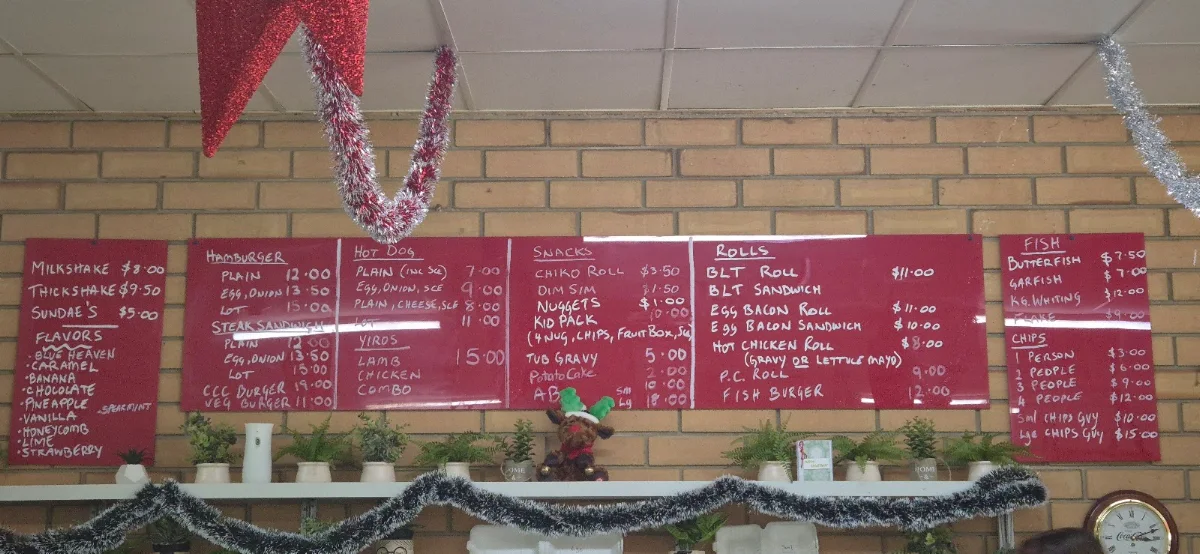 MILKSHAKE $8.00
THICKSHAKE $9.50
SUNDAE'S $5.00
FLAVORS
• BLUE HEAVEN
• CARAMEL
• BANANA
• CHOCOLATE
• PINEAPPLE
• SPEARMINT
• VANILLA
• HONEYCOMB
• LIME
• STRAWBERRY
HAMBURGER
PLAIN 12.00
EGG, ONION 13.50
LOT 15.00
STEAK SANDWICH
PLAIN 12.00
EGG, ONION 13.50
LOT 15.00
CCC BURGER 19.00
VEG BURGER 11.00
HOT DOG
PLAIN (INC SCE) 7.00
EGG, ONION, SCE 9.00
PLAIN, CHEESE, SCE 8.00
LOT 11.00
YIROS
LAMB 15.00
CHICKEN
COMBO
SNACKS
CHIKO ROLL $3.50
DIM SIM $1.50
NUGGETS $1.00
KID PACK 10.00
(4 NUG, CHIPS, FRUIT BOX,
TUB GRAVY 5.00
Potato Cake 2.00
Sm 10.00
Lg 18.00
ROLLS
BLT ROLL $11.00
BLT SANDWICH
EGG BACON ROLL $11.00
EGG BACON SANDWICH $10.00
HOT CHICKEN ROLL $8.00
(GRAVY OR LETTUCE MAYO)
P.C. ROLL 9.00
FISH BURGER 12.00
FISH
BUTTERFISH $7.50
GARFISH $7.00
KG. WHITING $12.00
FLAKE $9.00
CHIPS
1 PERSON $3.00
2 PEOPLE $6.00
3 PEOPLE $9.00
4 PEOPLE $12.00
Sml CHIPS GVY $10.00
Lge CHIPS GVY $15.00
HOME
HOME
Coca-Cola